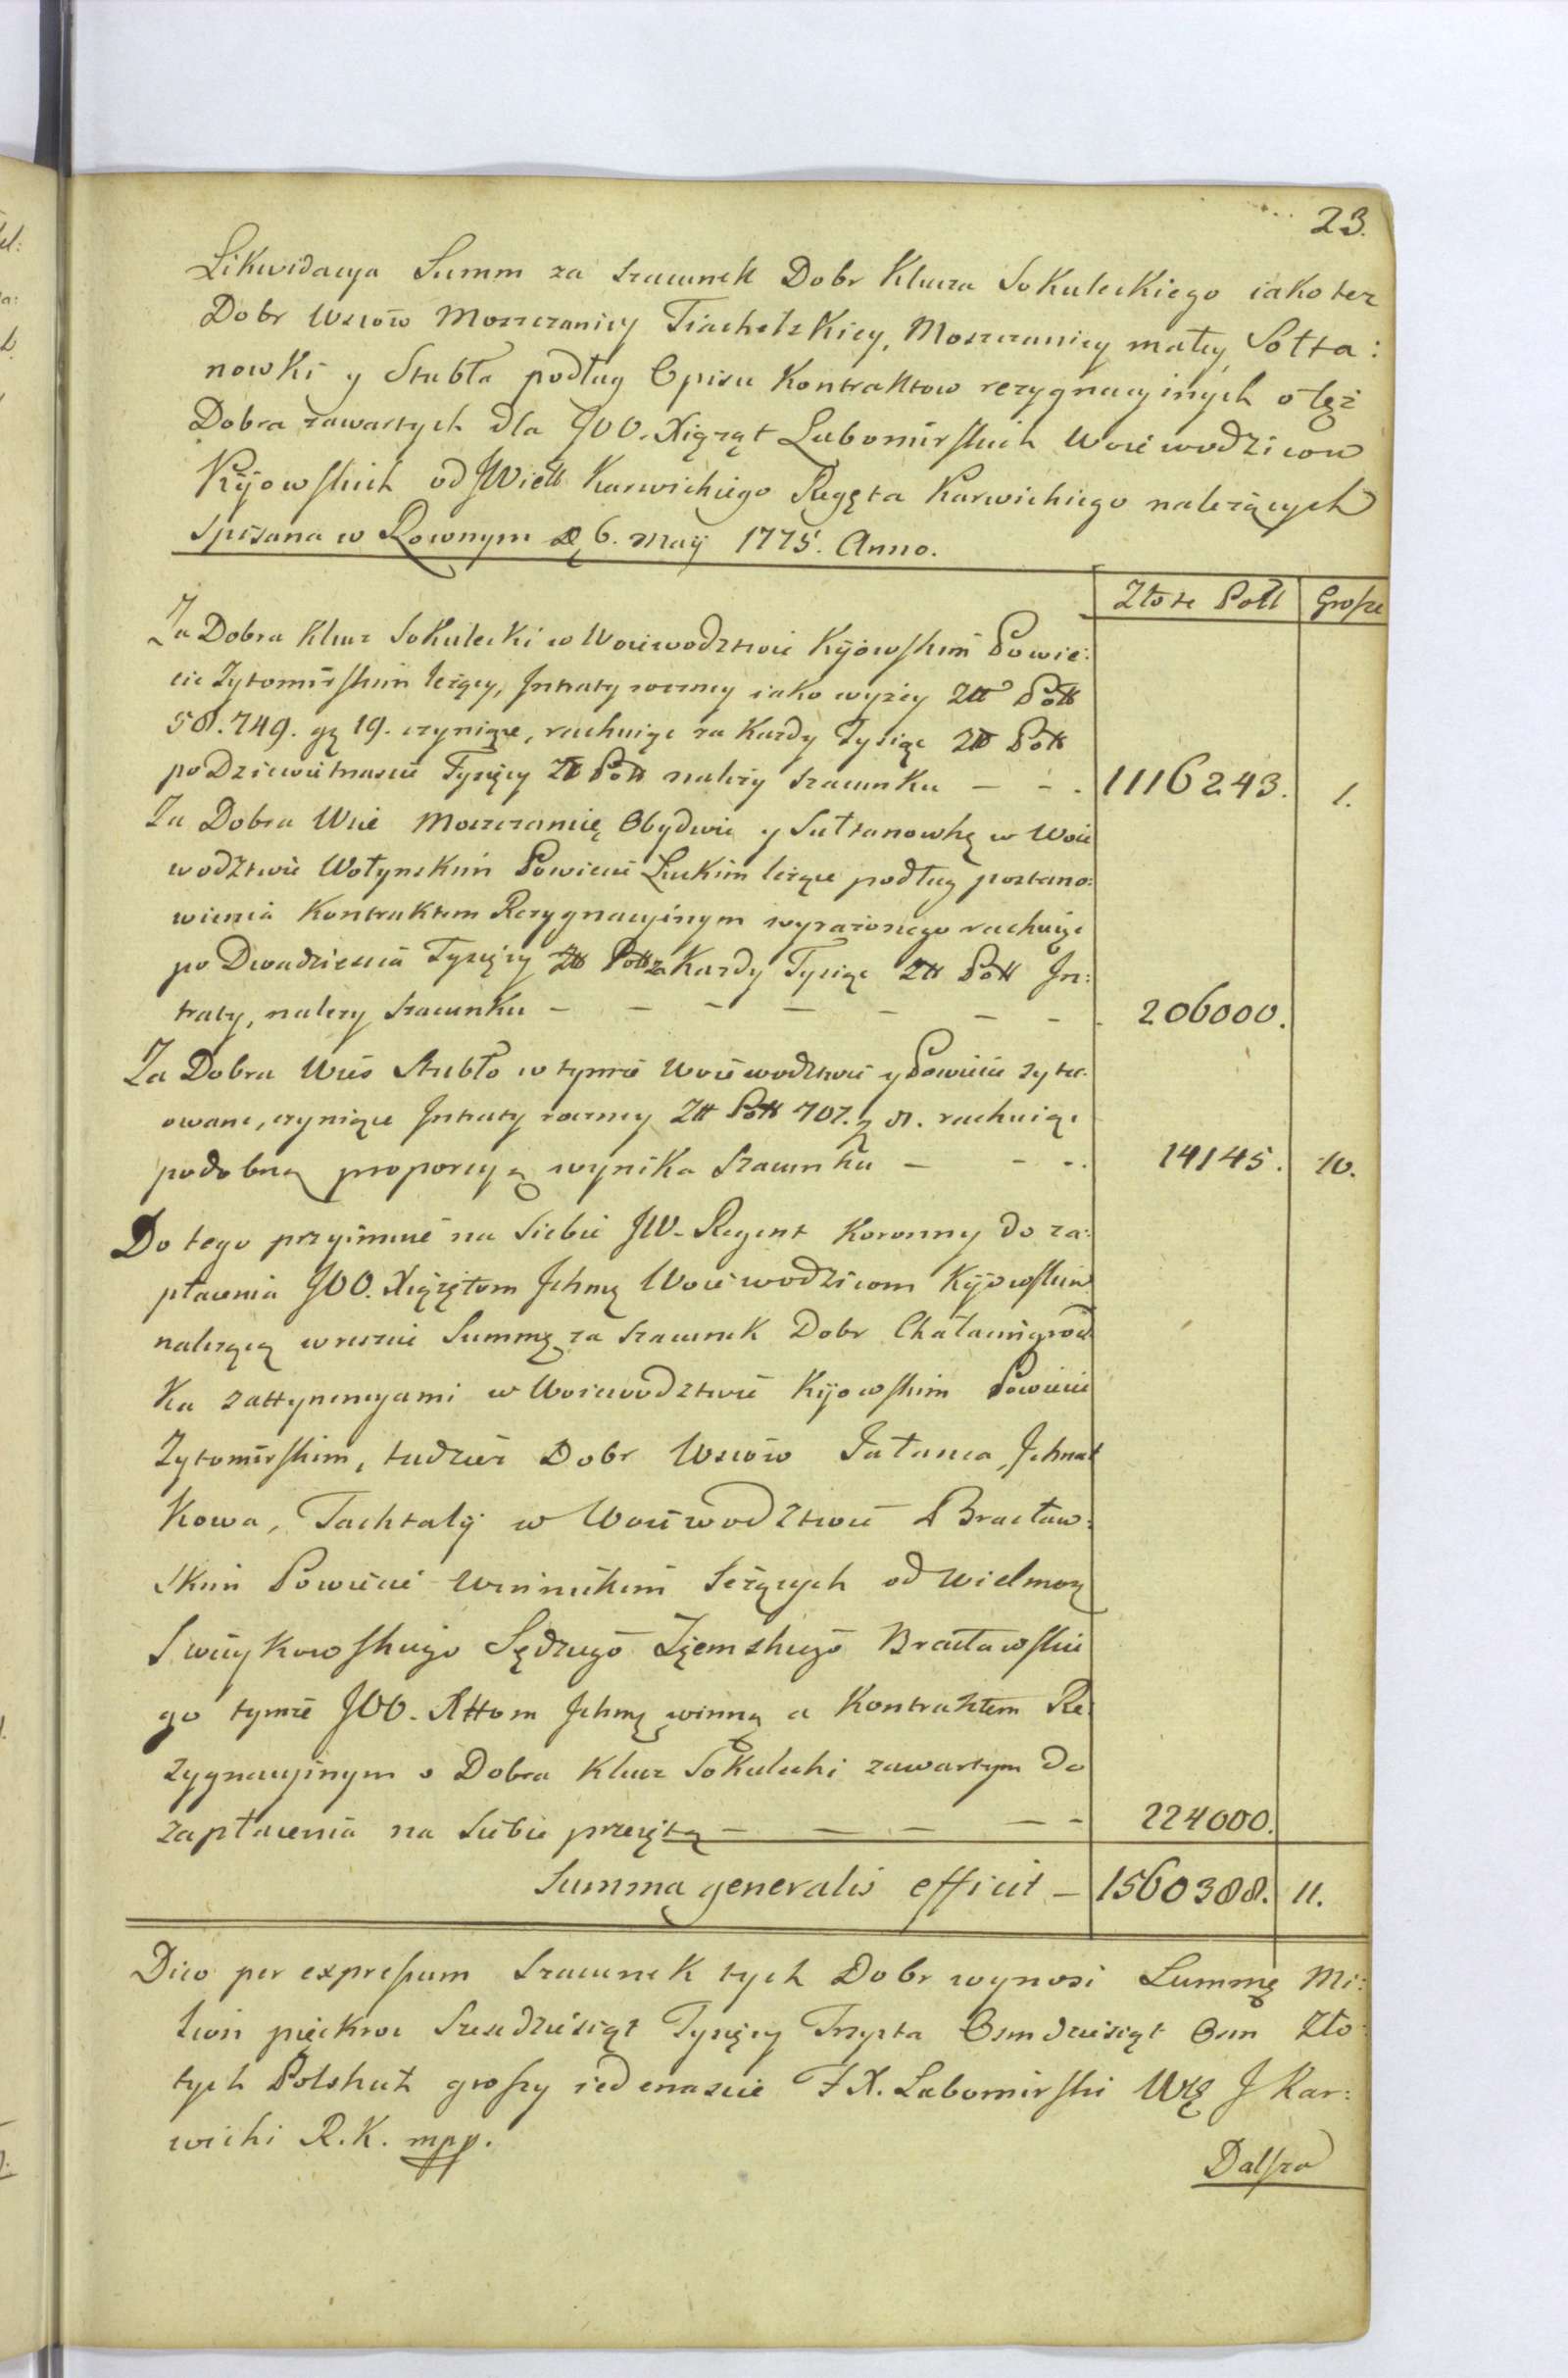 23.
Likwidacya Summ za szacunek Dobr Klucza Sokuleckiego iako tez
Dobr Wsiow Moszczanicy Trachelskiey, Moszczanicy małey, Sołta:
nowki y Stubła podług Opisu Kontraktow rezygnacyinych o też
Dobra zawartych dla JOO. Xiąząt Lubomirskich Woiewodzicow
Kijowskich od JWiel℔ Karwickiego Regęta Karwickiego należących
Spisana w Rownym d. 6. maij 1775. Anno.
Złote Poll Grosze
Za Dobra Klucz Sokulecki w Woiewodztwie Kijowskim Powie:
cie Zytomirskim leżący, Intraty roczney iako wyżey Złł Poll
58.749. gr 19. czyniące, rachuiąc za Kazdy Tysiąc Złł Poll
po Dziewietnascie Tysięcy Złł Poll należy szacunku - - - 1116243. 1.
Za Dobra Wsie Moszczanicę Obydwie y Sułtanowkę w Woie
wodztwie Wołynskim Powiecie Łuckim leżące podług postano:
wienia Kontraktem Rezygnacyinym wyrażonego rachuiąc
po Dwadziescia Tysięcy Złł Poll za Kazdy Tysiąc Złł Poll In:
traty, nalezy szacunku - - - - - - - 206000.
Za Dobra Wies Stubło w tymże Woiewodztwie y Powiecie sytu:
owane, czyniące Intraty roczney Złł Poll 707. g 8. rachuiąc
podobną proporcyą wynika szacunku - - - 14145. 10.
Do tego przyimuie na siebie JW. Regent Koronny do za:
płacenia JOO. Xiążętom Ichmę Woiewodzicom Kijowskim
należącą wreszcie Summę za szacunek Dobr Chałaimgrod
ka z attynencyami w Woiewodztwie Kijowskim Powiecie
Zytomirskim, tudzież Dobr Wsiow Jałanca, Ichnat
kowa, Tachtaly w Woiewodztwie Bracław:
skim Powiecie Winnickim leżących od Wielmoz
Sweykowskiego Sędziego Zięmskiego Bracławskie
go tymże JOO. Xttom Ichmę winną a Kontraktem Re:
zygnacyinym o Dobra Klucz Sokulecki zawartym do
zapłacenia na siebie przeiętą - - - - - 224000.
Summa generalis efficit - 1560388. 11.
Dico per expressum szacunek tych Dobr wynosi Summę Mi:
lion pięckroc Szescdziesiąt Tysięcy Trzysta Osmdziesiąt Osm Zło:
tych Polskich groszy iedenascie F X. Lubomirski WK J Kar:
wicki R.K. mpp.
Dalsza